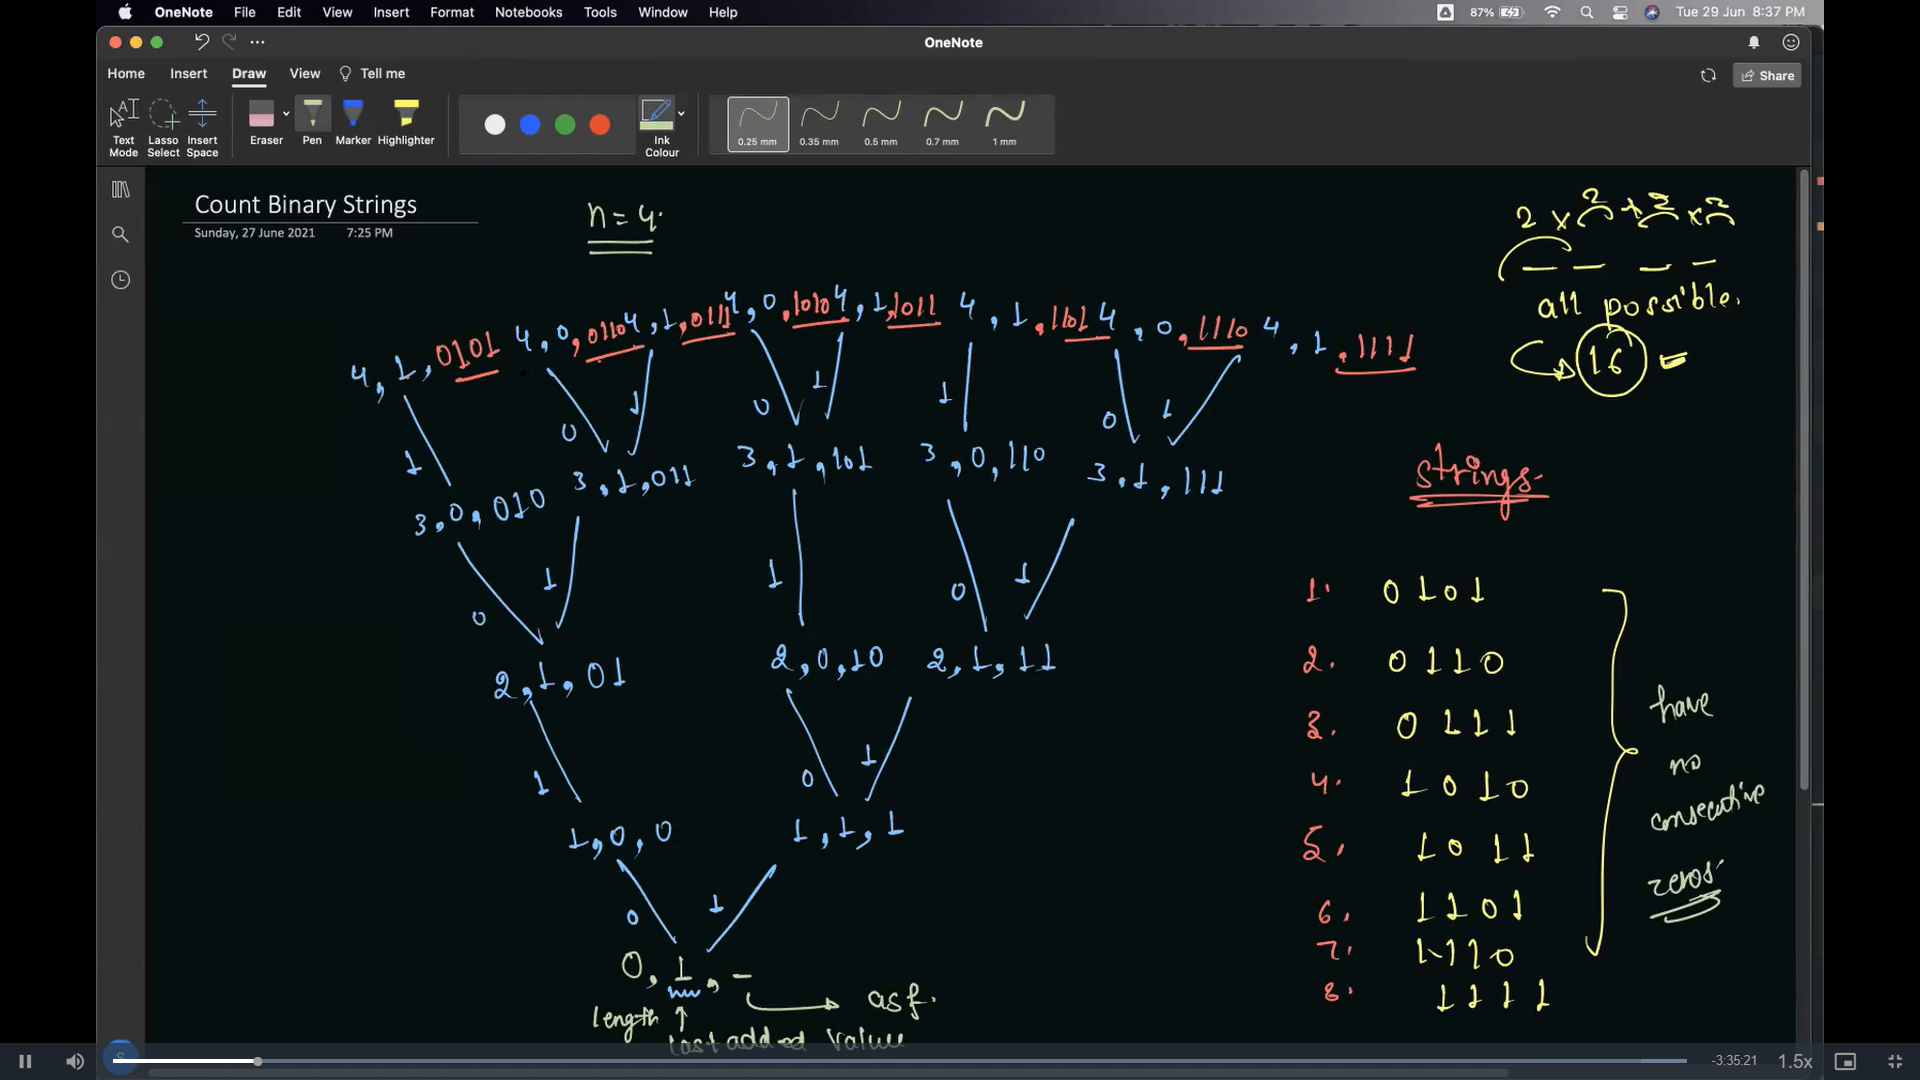 OneNote File Edit View Insert Format Notebooks Tools Window Help 87% Tue 29 Jun 8:37 PM
OneNote
Home Insert Draw View Tell me Share
Text Mode Lasso Select Insert Space Eraser Pen Marker Highlighter Ink Colour 0.25 mm 0.35 mm 0.5 mm 0.7 mm 1 mm
Count Binary Strings
Sunday, 27 June 2021 7:25 PM
n = 4.
2 x 2 x 2 x 2
all possible.
16
4, 1, 0101 4, 0, 0110 4, 1, 0111 4, 0, 1010 4, 1, 1011 4, 1, 1101 4, 0, 1110 4, 1, 1111
1 0 1 0 1 1 0 1
3, 0, 010 3, 1, 011 3, 1, 101 3, 0, 110 3, 1, 111
0 1 1 0 1
2, 1, 01 2, 0, 10 2, 1, 11
1 0 1
1, 0, 0 1, 1, 1
0 1
0, 1, -
length
last added value
asf.
strings
1. 0 1 0 1
2. 0 1 1 0
3. 0 1 1 1
4. 1 0 1 0
5. 1 0 1 1
6. 1 1 0 1
7. 1 1 1 0
8. 1 1 1 1
have
no
consecutive
zeros
-3:35:21 1.5x